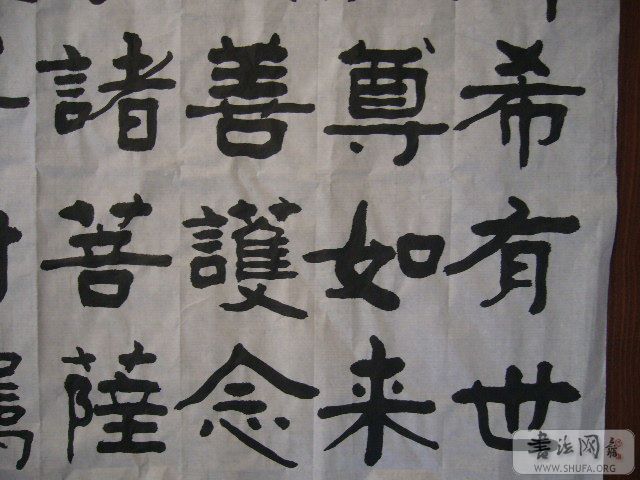 希有世
尊如来
善護念
諸菩薩
書法网
WWW.SHUFA.ORG